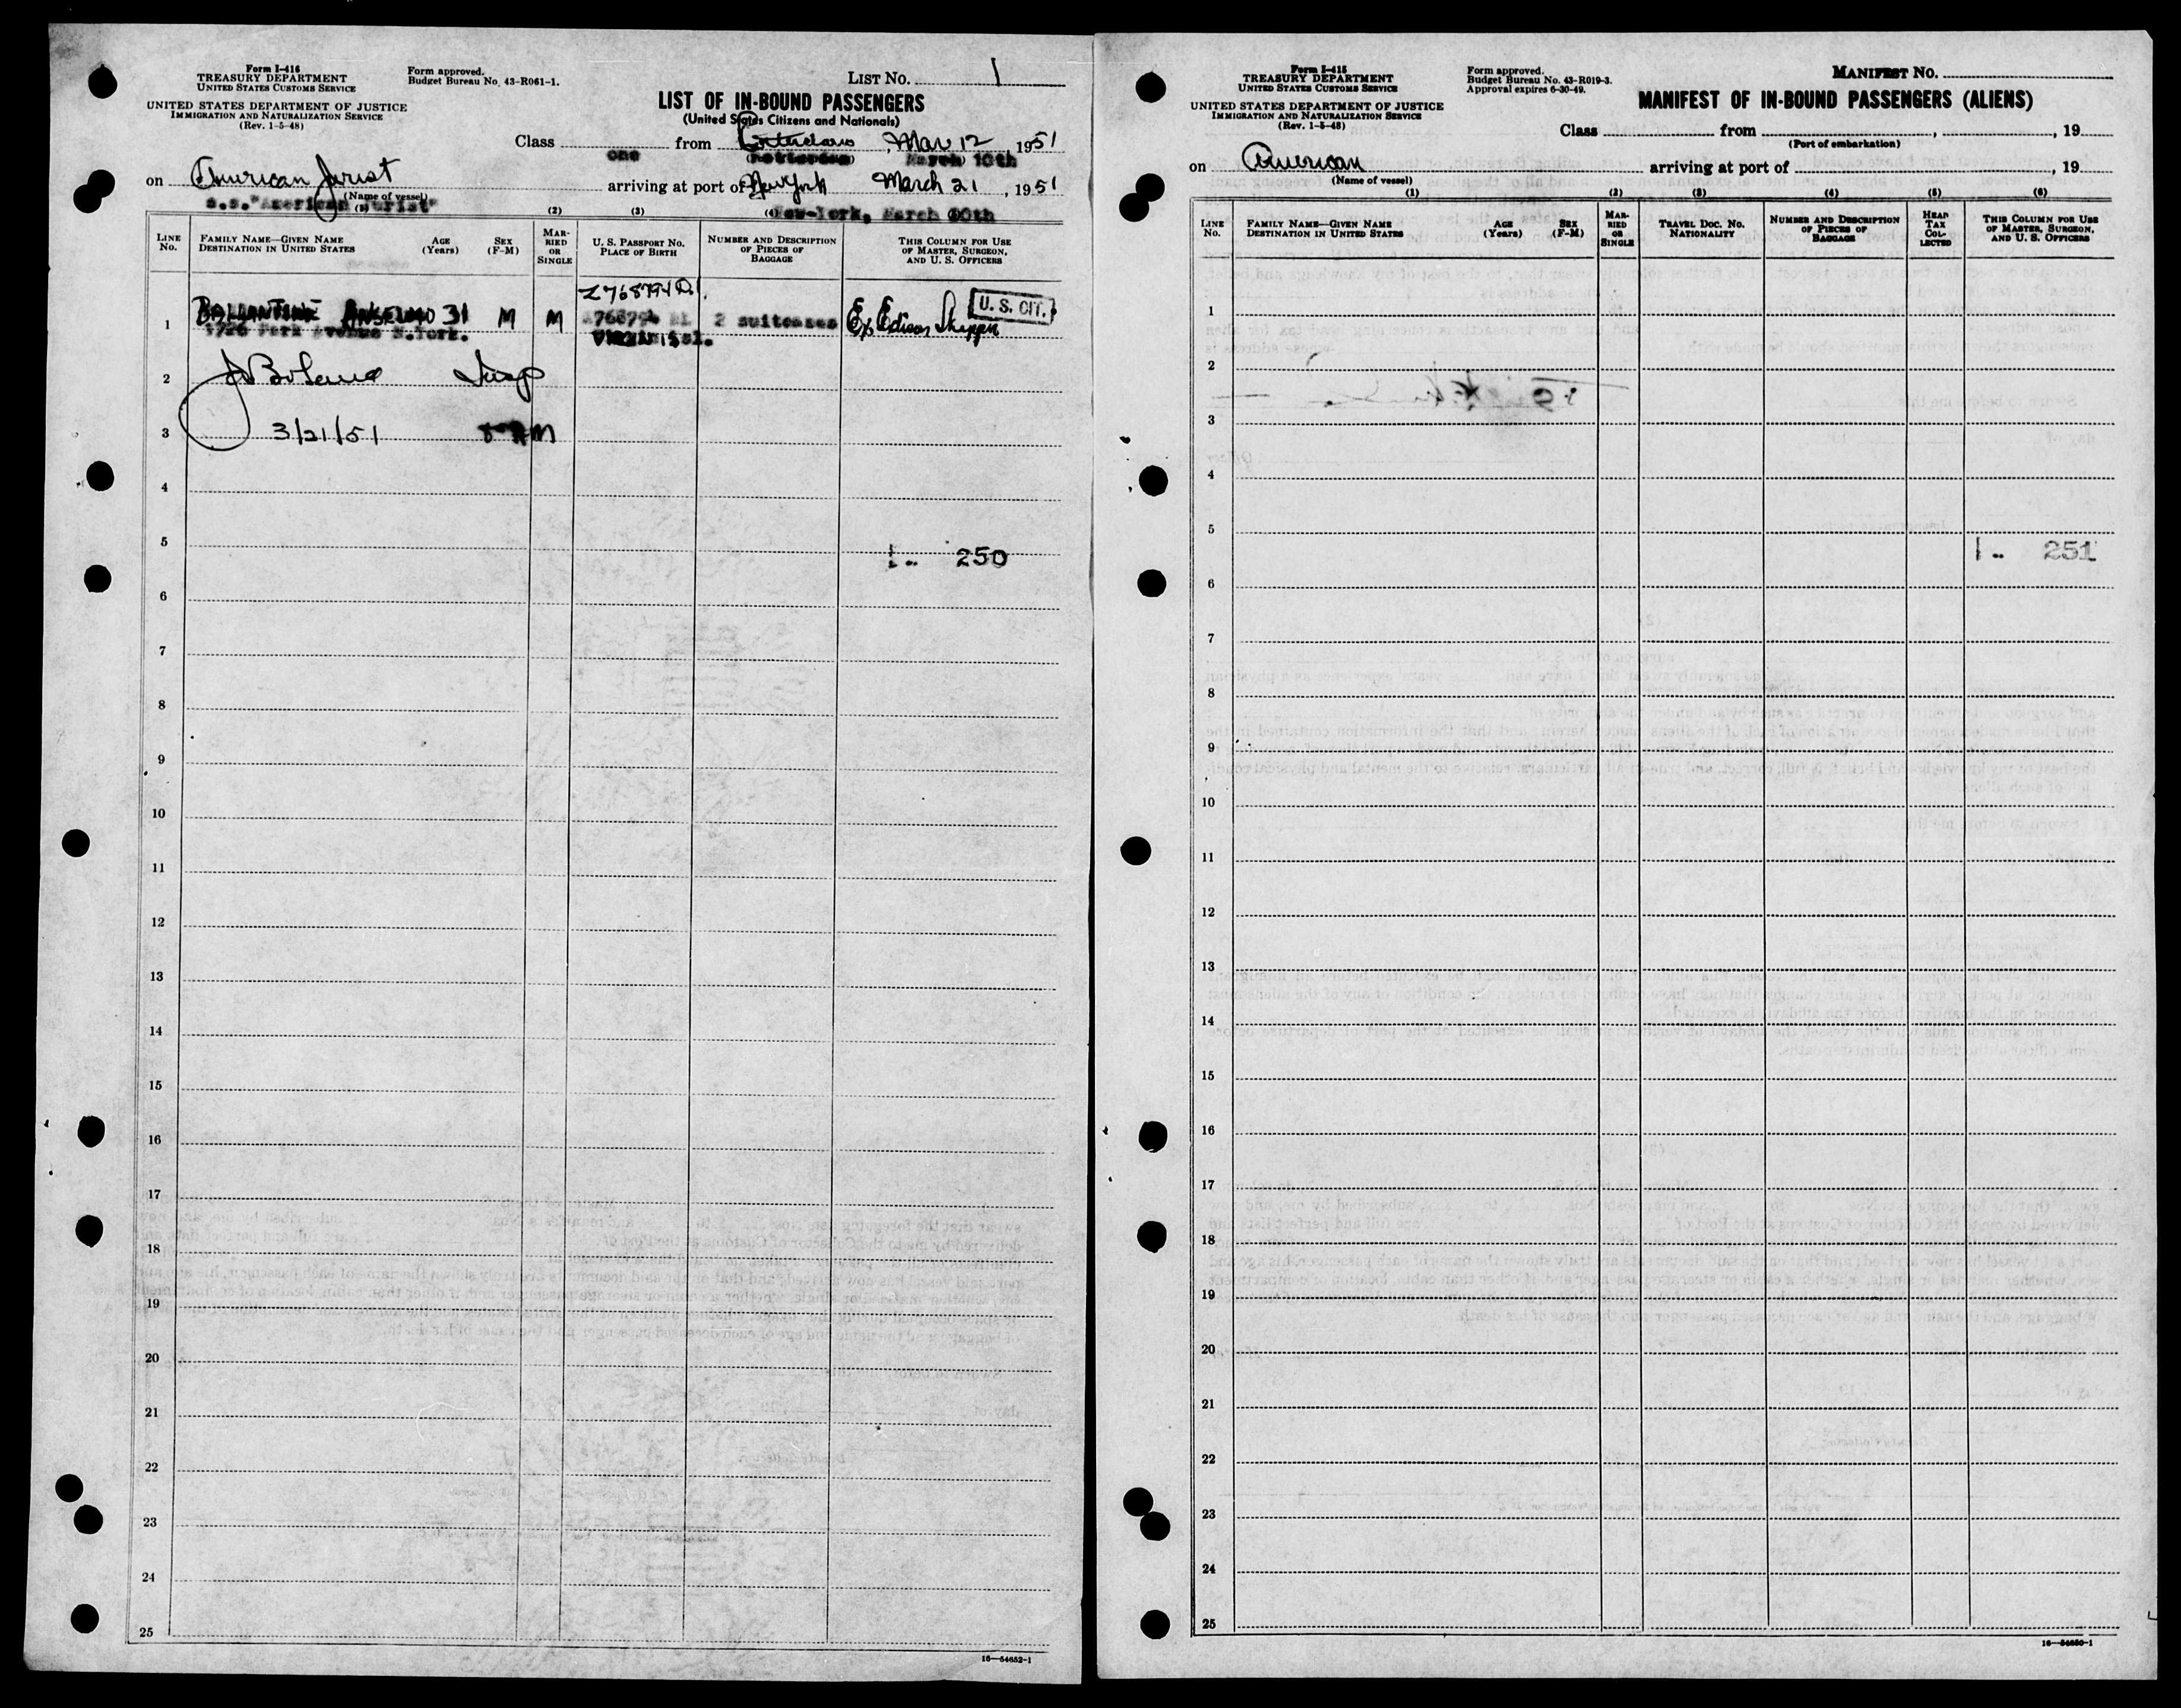 Form I-416
TREASURY DEPARTMENT
UNITED STATES CUSTOMS SERVICE
Form approved.
Budget Bureau No. 43-R061-1.
LIST NO. 1
UNITED STATES DEPARTMENT OF JUSTICE
IMMIGRATION AND NATURALIZATION SERVICE
(Rev. 1-5-48)
LIST OF IN-BOUND PASSENGERS
(United States Citizens and Nationals)
Class from Mar 12, 1951
one (Rotterdam) March 10th
on American Jurist arriving at port of New York March 21, 1951
(Name of vessel)
s.s. "American Jurist"
New-York, March
(1) (2) (3) (4)
LINE NO.
FAMILY NAME—GIVEN NAME
DESTINATION IN UNITED STATES
AGE
(Years)
SEX
(F-M)
MARRIED OR SINGLE
U. S. PASSPORT NO.
PLACE OF BIRTH
NUMBER AND DESCRIPTION OF PIECES OF BAGGAGE
THIS COLUMN FOR USE OF MASTER, SURGEON, AND U. S. OFFICERS
Z768794
1 BALLANTINE ANSELMO 31 M M 768794 2 suitcases Ex Edison U. S. CIT.
1726 Park Avenue N.York.
2 Insp
3 3/21/51
4
5
250
6
7
8
9
10
11
12
13
14
15
16
17
18
19
20
21
22
23
24
25
16—54652-1
Form I-415
TREASURY DEPARTMENT
UNITED STATES CUSTOMS SERVICE
Form approved.
Budget Bureau No. 43-R019-3.
Approval expires 6-30-49.
MANIFEST NO.
UNITED STATES DEPARTMENT OF JUSTICE
IMMIGRATION AND NATURALIZATION SERVICE
(Rev. 1-5-48)
MANIFEST OF IN-BOUND PASSENGERS (ALIENS)
Class from , , 19
(Port of embarkation)
on American arriving at port of , 19
(Name of vessel)
(1) (2) (3) (4) (5) (6)
LINE NO.
FAMILY NAME—GIVEN NAME
DESTINATION IN UNITED STATES
AGE
(Years)
SEX
(F-M)
MARRIED OR SINGLE
TRAVEL DOC. NO.
NATIONALITY
NUMBER AND DESCRIPTION OF PIECES OF BAGGAGE
HEAD TAX COLLECTED
THIS COLUMN FOR USE OF MASTER, SURGEON, AND U. S. OFFICERS
1
2
3
4
5
251
6
7
8
9
10
11
12
13
14
15
16
17
18
19
20
21
22
23
24
25
16—54650-1